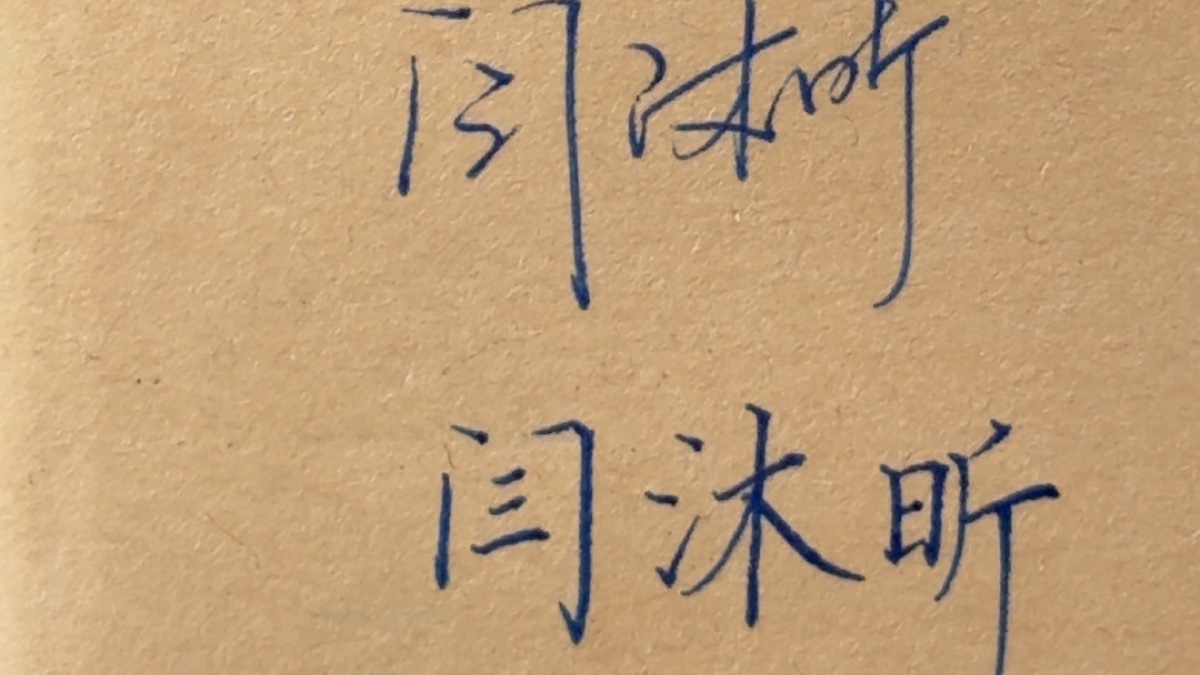 闫沐昕
闫沐昕